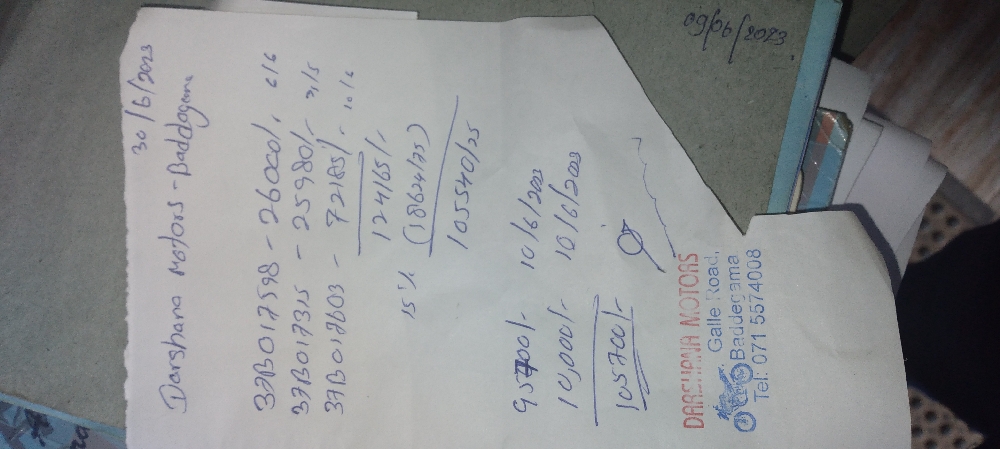 09/06/2023
30/6/2023
Darshana Motors - Baddagama
37B017598 - 26000/. 6/6
37B017315 - 25980/-
37B017603 - 72185/- 10/6
124165/-
15% (18624/75)
105540/25
95700/- 10/6/2023
10,000/- 10/6/2023
105700/-
DARSHANA MOTORS
Galle Road,
Baddegama
Tel: 071 5574008